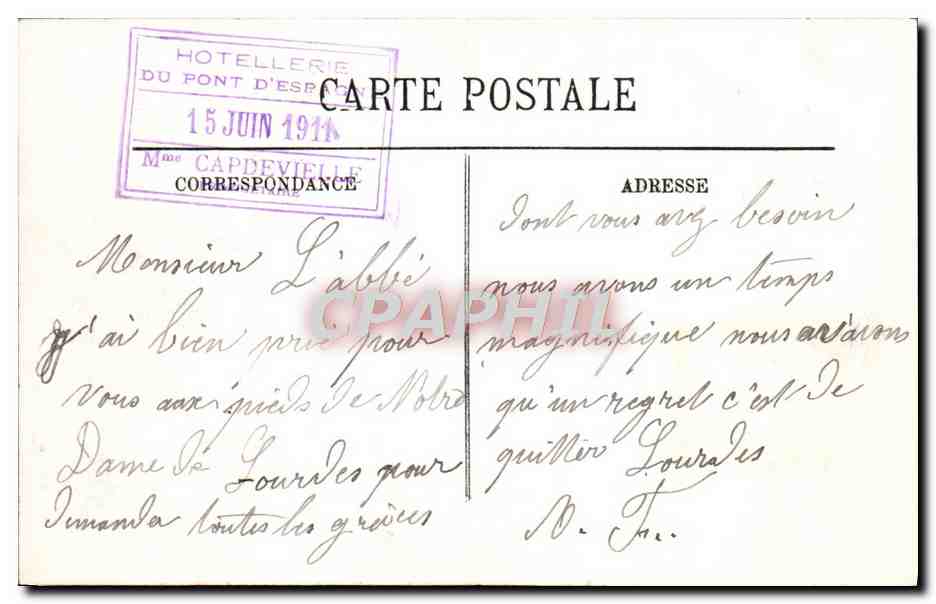 HOTELLERIE
DU PONT D'ESPAGNE
15 JUIN 1911
Mme CAPDEVIELLE
CARTE POSTALE
CORRESPONDANCE
Monsieur L'abbé
j'ai bien prié pour
vous aux pieds de Notre
Dame de Lourdes pour
demander toutes les grâces
ADRESSE
dont vous avez besoin
nous avons un temps
magnifique nous n'avons
qu'un regret c'est de
quitter Lourdes
CPAPHIL